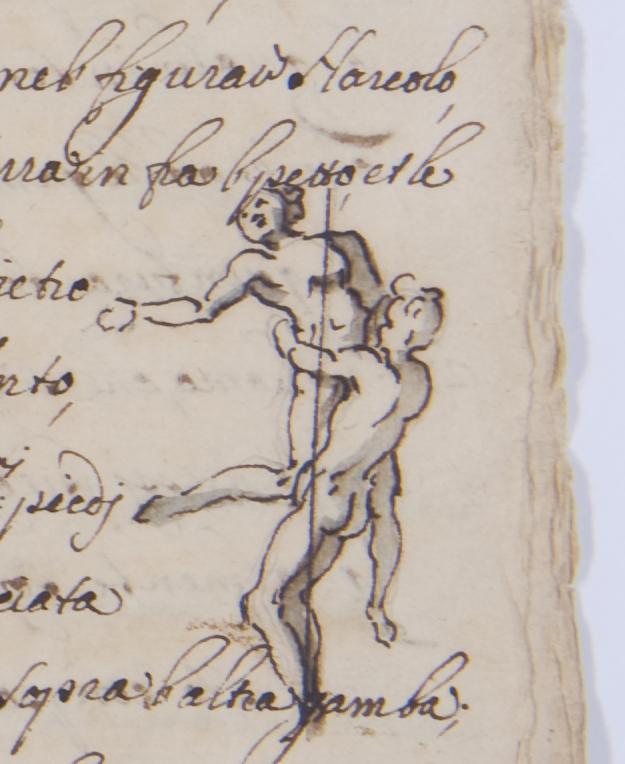 nel figurar Harcolo,
rra in fra l petto, et le
ietro
nto,
piedj
ciata
sopra l altra gamba;